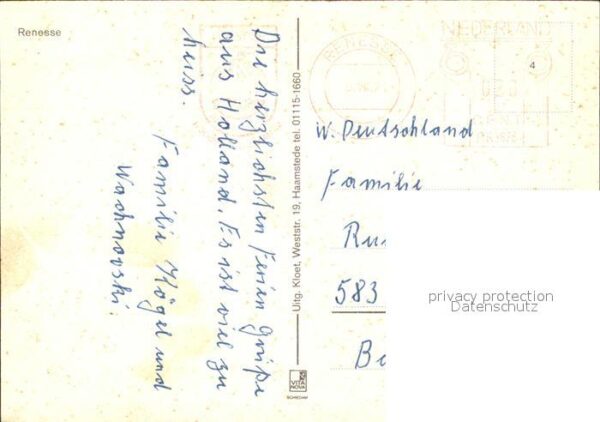 Renesse
Die herzlichsten Ferien Grüße
aus Holland. Es ist viel zu
heiss.
Familie Högel und
Wachnovski.
Uitg. Kloet, Weststr. 19, Haamstede tel. 01115-1660
VITA
NOVA
SCHIEDAM
RENESSE
NEDERLAND
4
W. Deutschland
Familie
Ru
583
Be
privacy protection
Datenschutz